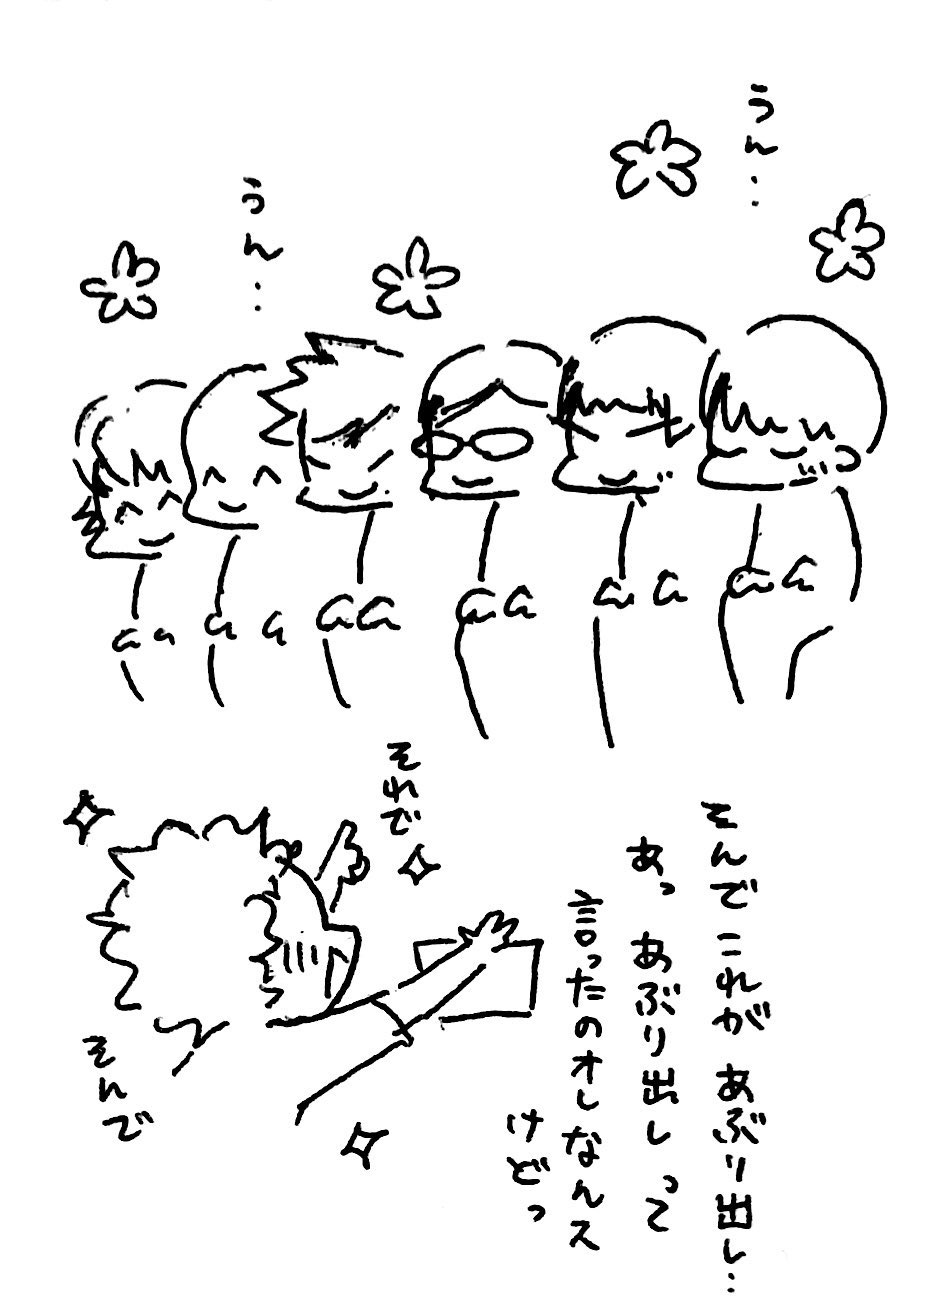 うん…
うん…
それで
そんでこれがあぶり出し…
あっ あぶり出しって
言ったのオレなんス
けどっ
そんで